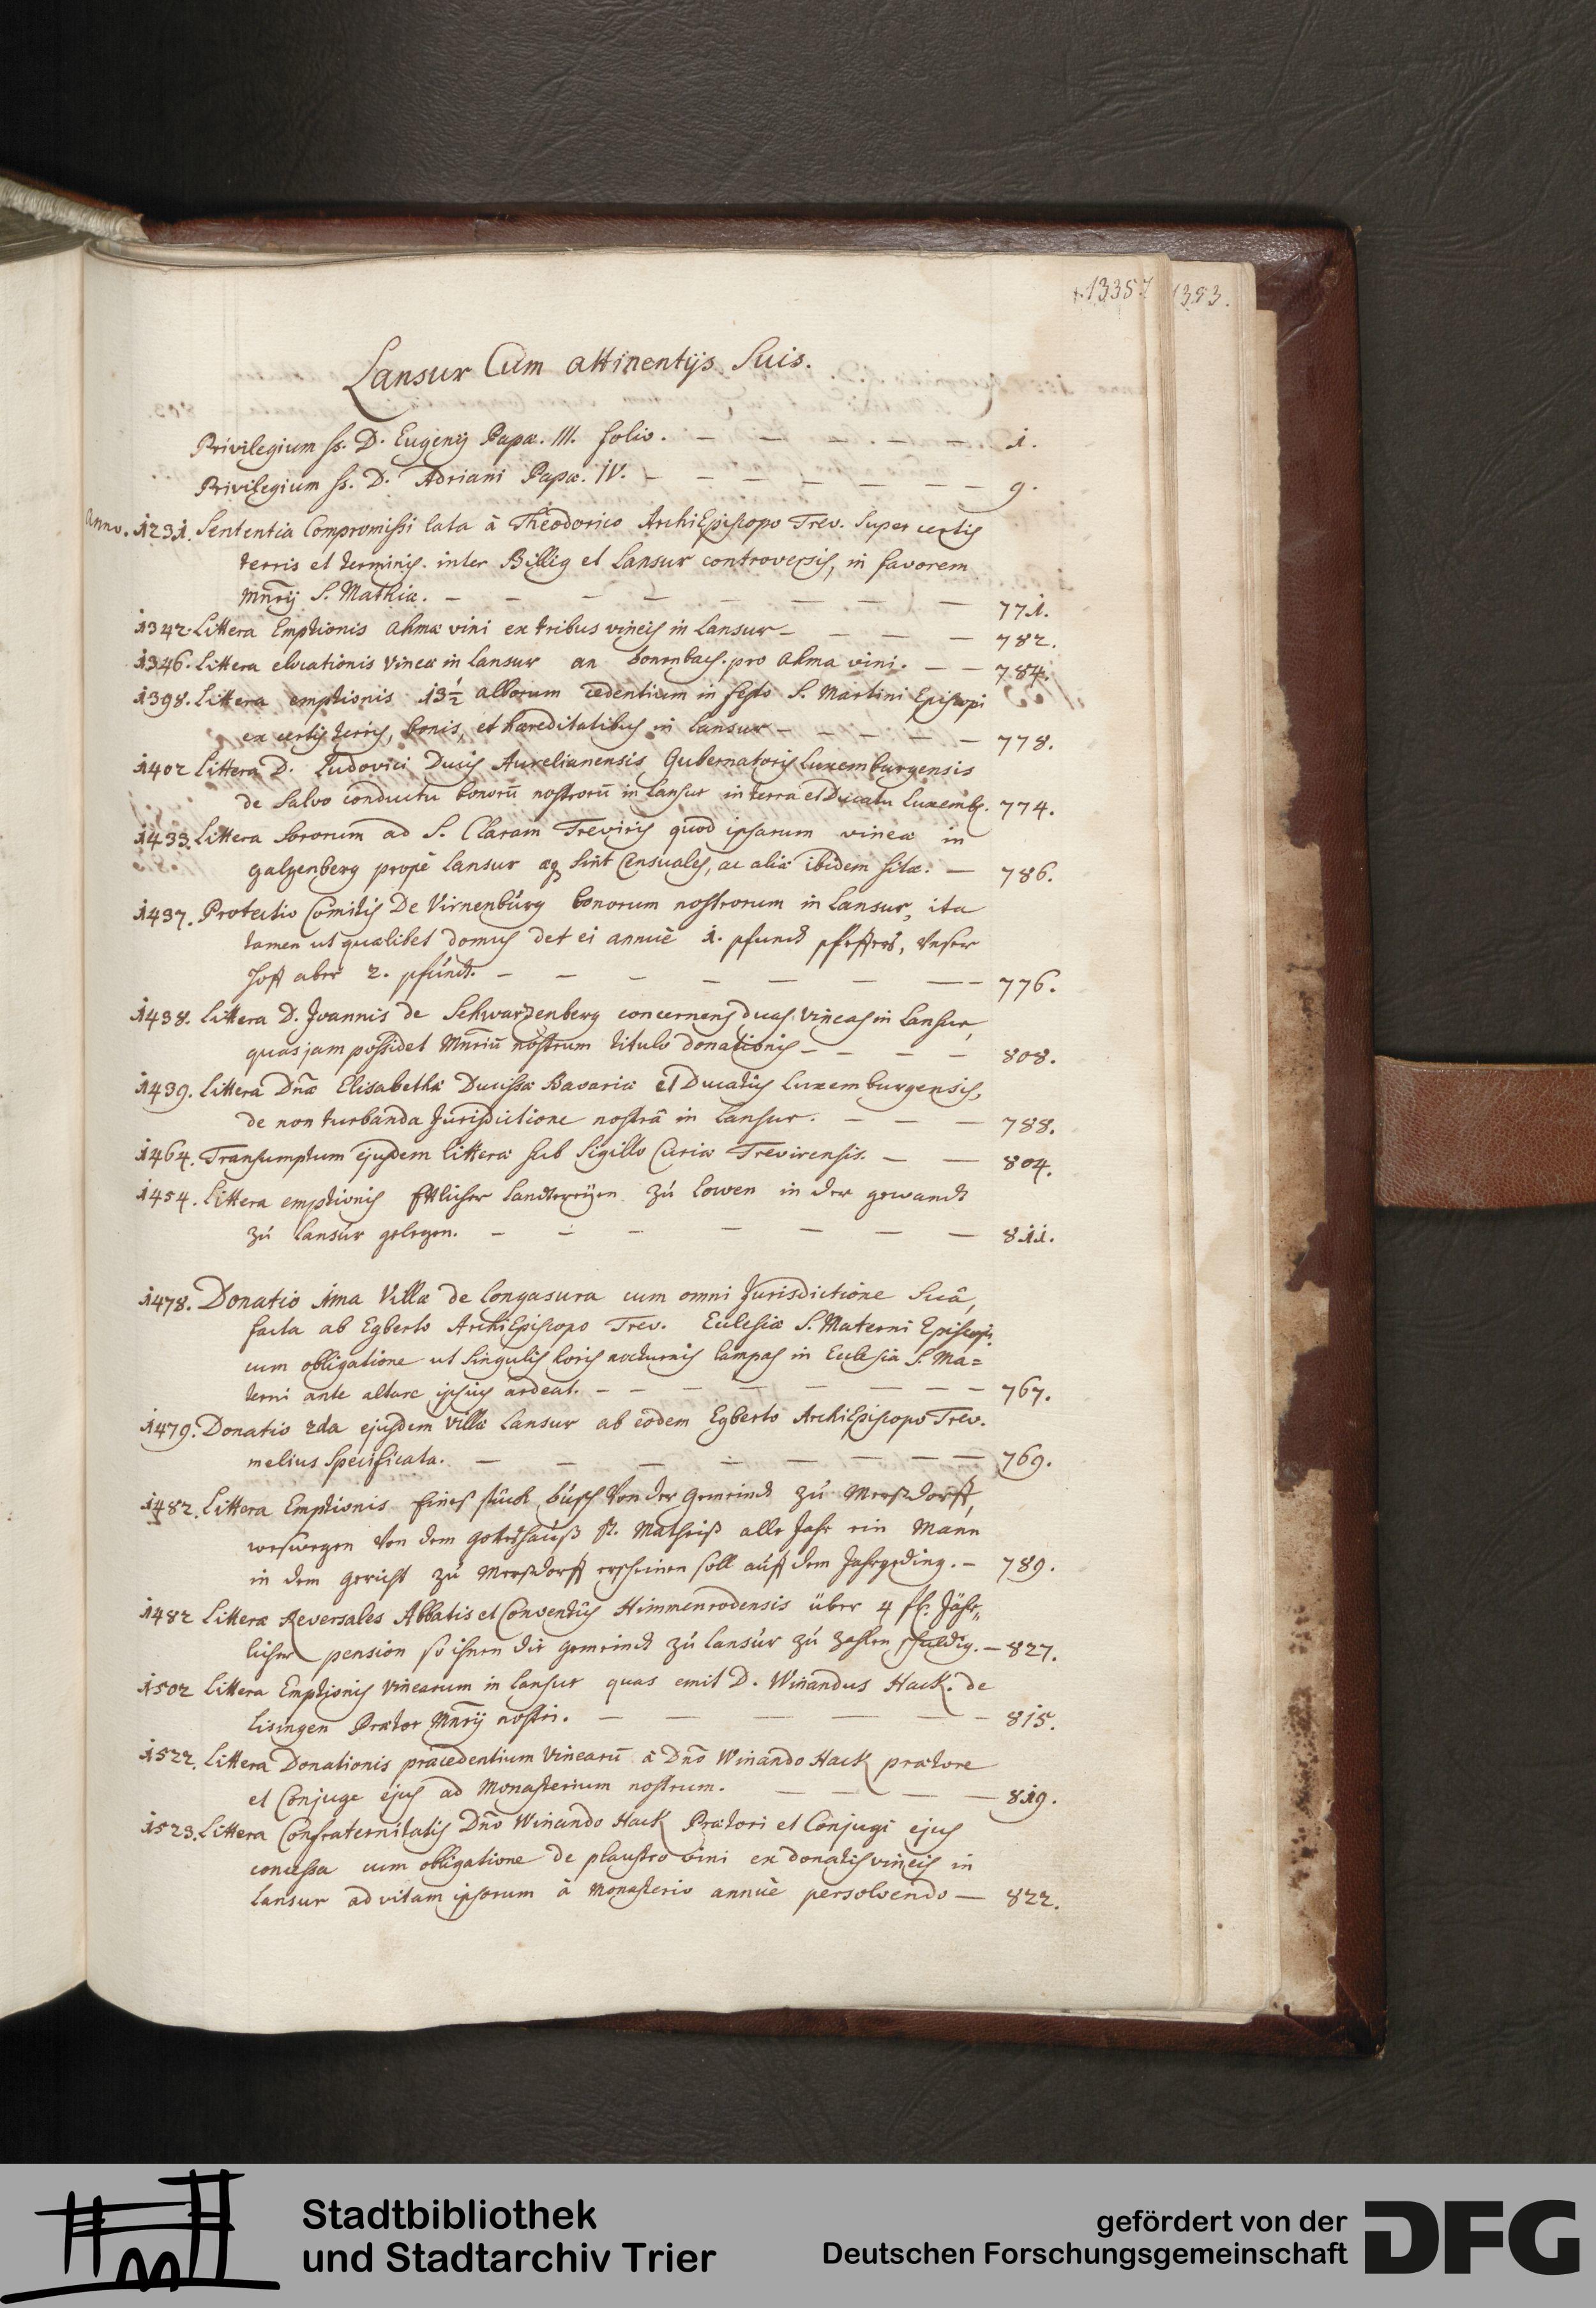 1335.
1353.
Lansur Cum attinentijs Suis.
Privilegium ss. D. Eugenij Papæ. III. folio. — — — — — 1.
Privilegium ss. D. Adriani Papæ. IV. — — — — — — 9.
Anno. 1231. Sententia Compromissi lata à Theodorico ArchiEpiscopo Trev. super certis
terris et terminis inter Billig et Lansur controversis, in favorem
Mnrij S. Mathiæ. — — — — — — — — 771.
1342. Littera Emptionis ahmæ vini ex tribus vineis in Lansur — — — — 782.
1346. Littera elocationis vineæ in Lansur an pro ahma vini. — — 784.
1398. Littera emptionis 13½ alborum cedentium in festo S. Martini Episcopi
ex certis terris, bonis, et hæreditatibus in Lansur — — — — — 778.
1402 Littera D. Ludovici Ducis Aurelianensis Gubernatoris Luxemburgensis
de Salvo conductu bonorū nostrorū in Lansur in terra et Ducatu Luxemb. 774.
1433. Littera Sororum ad S. Claram Treviris quod ipsarum vineæ in
galgenberg propè Lansur æq sint Censuales, ac aliæ ibidem sitæ. — 786.
1437. Protectio Comitis De Virnenburg bonorum nostrorum in Lansur, ita
tamen ut quælibet domus det ei annuè 1. pfundt pfeffers, Unser
Hoff aber 2. pfundt. — — — — — — — 776.
1438. Littera D. Joannis de Schwarzenberg concernens duas vineas in Lansur,
quas jam possidet Mnriū nostrum titulo donationis — — — — 808.
1439. Littera Dnæ Elisabethæ Ducissæ Bavariæ et Ducatûs Luxemburgensis,
de non turbanda Jurisdictione nostrâ in Lansur. — — — 788.
1464. Transumptum ejusdem litteræ sub Sigillo Curiæ Trevirensis. — — 804.
1454. Littera emptionis Ettlicher Landtereyen zu Lowen in der gewandt
zu Lansur gelegen. — — — — — — — 811.
1478. Donatio 1ma Villæ de Longasura cum omni Jurisdictione Suâ,
facta ab Egberto ArchiEpiscopo Trev. Ecclesiæ S. Materni Episcopi
cum obligatione ut singulis horis nocturnis lampas in Ecclesia S. Ma=
terni ante altare ipsius ardeat. — — — — — — — 767.
1479. Donatio 2da ejusdem Villæ Lansur ab eodem Egberto ArchiEpiscopo Trev.
melius Specificata. — — — — — — — 769.
1482. Littera Emptionis Eines stück büsch Von der Gemeindt zu Mersdorff,
weswegen Von dem gotteshauß St. Matheiß alle Jahr ein Mann
in dem gericht zu Mersdorff erscheinen soll auff dem Jahrgeding. — 789.
1482 Litteræ Reversales Abbatis et Conventûs Himmenrodensis über 4 fl. Jähr„
licher pension so ihnen die gemeindt zu Lansur zu zahlen schuldig. — 827.
1502 Littera Emptionis Vinearum in Lansur quas emit D. Winandus Hack de
Lisingen Prætor Mnrij nostri. — — — — — — 815.
1522. Littera Donationis præcedentium Vinearū à Dnō Winando Hack prætore
et Conjuge ejus ad Monasterium nostrum. — — — — 819.
1523. Littera Confraternitatis Dnō Winando Hack Prætori et Conjugi ejus
concessa cum obligatione de plaustro vini ex donatis vineis in
Lansur ad vitam ipsorum à Monasterio annuè persolvendo — 822.
Stadtbibliothek
und Stadtarchiv Trier
gefördert von der
Deutschen Forschungsgemeinschaft
DFG